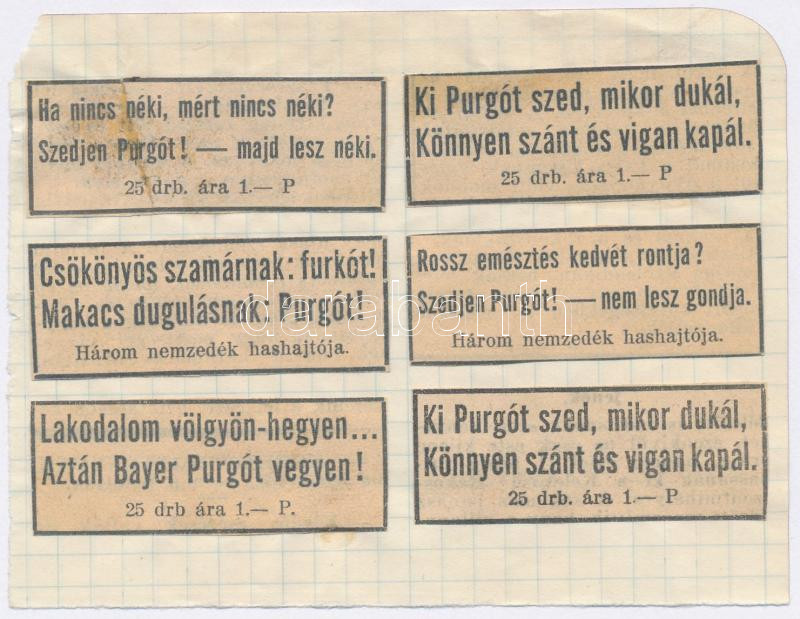 Ha nincs néki, mért nincs néki?
Szedjen Purgót! — majd lesz néki.
25 drb. ára 1.— P
Ki Purgót szed, mikor dukál,
Könnyen szánt és vigan kapál.
25 drb. ára 1.— P
Csökönyös szamárnak: furkót!
Makacs dugulásnak: Purgót!
Három nemzedék hashajtója.
Rossz emésztés kedvét rontja?
Szedjen Purgót! — nem lesz gondja.
Három nemzedék hashajtója.
Lakodalom völgyön-hegyen...
Aztán Bayer Purgót vegyen!
25 drb ára 1.— P.
Ki Purgót szed, mikor dukál,
Könnyen szánt és vigan kapál.
25 drb ára 1.— P
darabanth